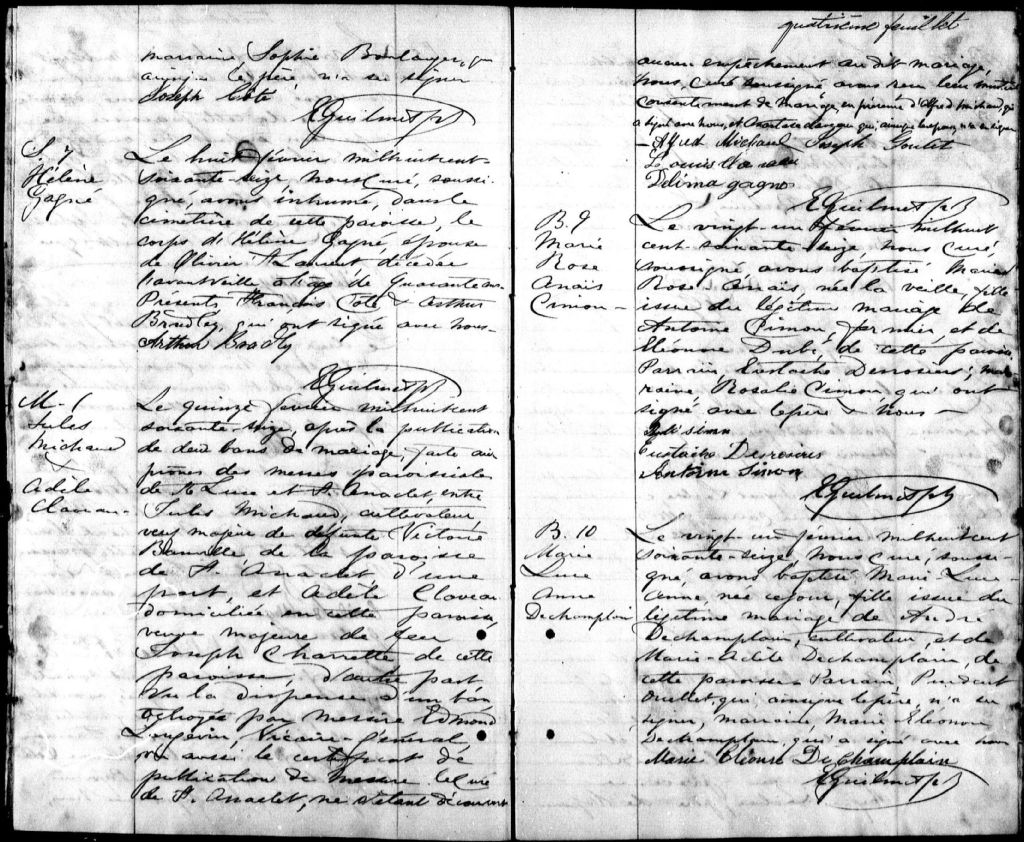 marraine, Sophie Boulanger, qui
ainsi que le père n'a su signer
Joseph Coté
EGuilmet ptr
S. 7
Hélène
Gagné
Le huit février milhuitcent-
soixante-seize, nous Curé, soussi-
gné, avons inhumé, dans le
cimetière de cette paroisse, le
corps d'Hélène Gagné, épouse
de Olivier St Laurent décédée
l'avantveille agée de quarante ans
Présents François Coté & Arthur
Bradley, qui ont signé avec nous-
Arthur Bradley
EGuilmet ptr
M.
Jules
Michaud
&
Adèle
Claveau-
Le quinze février milhuitcent
soixante-seize, après la publication
de deux bans de mariage, faite aux
prônes des messes paroissiales
de Ste Luce et St. Anaclet, entre
Jules Michaud, cultivateur,
veuf majeur de défunte Victoire
Banville de la paroisse
de St. Anaclet d'une
part, et Adèle Claveau
domiciliée en cette paroisse,
veuve majeure de feu
Joseph Charrette de cette
paroisse, d'autre part
Vu la dispense d'un ban
octroyée par messire Edmond
Langevin, Vicaire-Général,
vu aussi le certificat de
publication de messire le curé
de St. Anaclet, ne s'étant découvert
quatrième feuillet
aucun empêchement au dit mariage,
nous, curé soussigné avons reçu leur mutuel
consentement de mariage, en présence d'Alfred Michaud, qui
a signé avec nous, et
Alfred Michaud Joseph Goulet
Louis
Délima gagno
EGuilmet ptr
B. 9
Marie
Rose
Anaïs
Cimon-
Le vingt-un février milhuit
cent soixante seize, nous curé
soussigné, avons baptisé Marie
Rose Anaïs, née la veille, fille
issue du légitime mariage de
Antoine Cimon, fermier et de
Eléonore Dubé, de cette paroisse
Parrain Eustache Desrosiers; mar-
raine Rosalie Cimon, qui ont
signé avec le père & nous-
simon
Eustache Desrosiers
Antoine Simon
EGuilmet ptr
B. 10
Marie
Luce
Anne
Dechamplain
Le vingt un février milhuitcent
soixante-seize, nous curé, soussi-
gné, avons baptisé Marie Luce
Anne, née ce jour, fille issue du
légitime mariage de André
Dechamplain, cultivateur, et de
Marie-Adèle Dechamplain, de
cette paroisse. Parrain
Ouellet, qui, ainsi que le père, n'a su
signer, marraine Marie Eléonore
Dechamplain qui a signé avec nous
Marie Eléonore DeChamplain
EGuilmet ptr